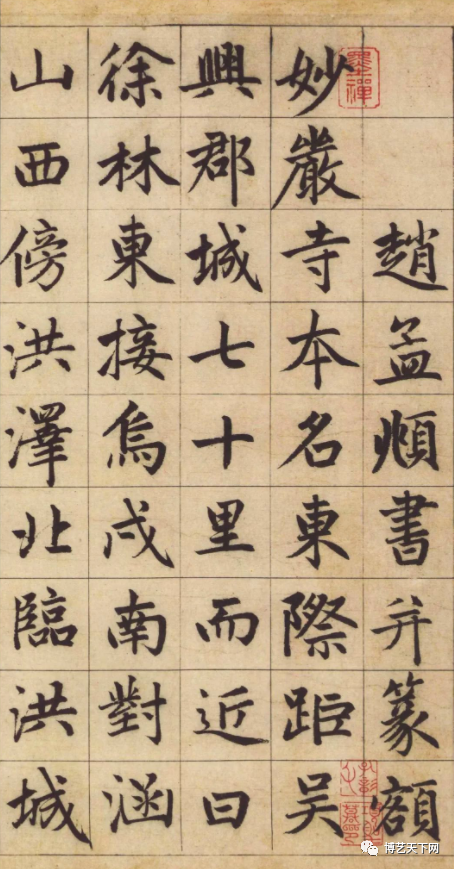 趙孟頫書并篆額
妙嚴寺本名東際距吳
興郡城七十里而近曰
徐林東接烏戍南對涵
山西傍洪澤北臨洪城
墨禪
博艺天下网